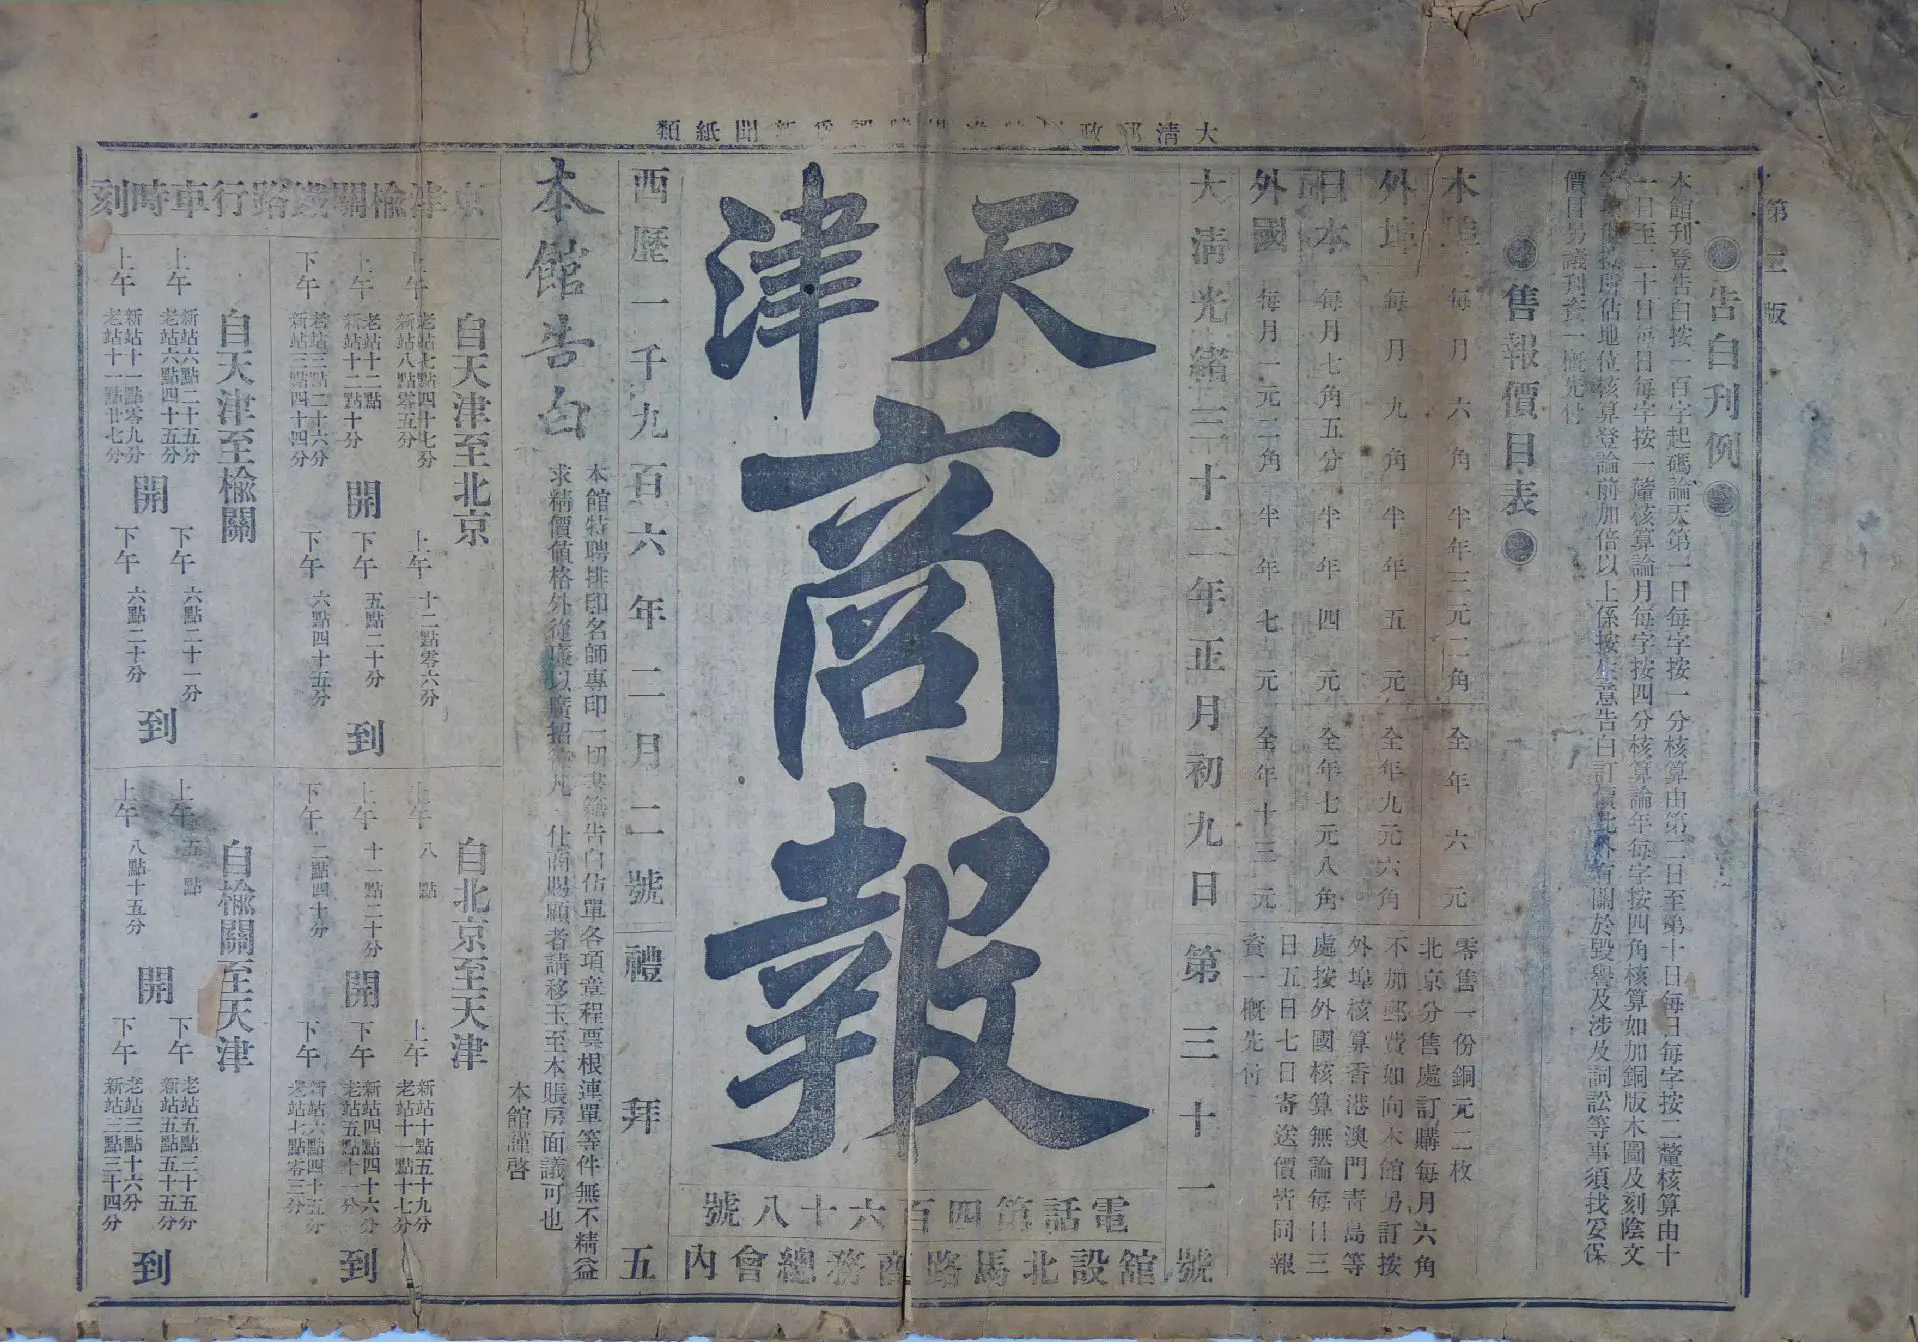 第 版
大清郵政 新聞紙類
告白刊例
本館刊登告白按一百字起碼論天第一日每字按一分核算由第二日至第十日每日每字按二釐核算由十
一日至二十日每日每字按一釐核算論月每字按四分核算論年每字按四角核算如加銅版木圖及刻陰文
所佔地位核算登論前加倍以上係按生意告白訂價此外有關於毀譽及涉及詞訟等事須找妥保
價目另議刊資一概先付
售報價目表
本埠 每月六角 半年三元二角 全年六元
外埠 每月九角 半年五元 全年九元六角
日本 每月七角五分 半年四元 全年七元八角
外國 每月一元二角 半年七元 全年十三元
零售一份銅元二枚
北京分售處訂購每月六角
不加郵費如向本館另訂按
外埠核算香港澳門青島等
處按外國核算無論每日三
日五日七日寄送價皆同報
資一概先付
大清光緒三十二年正月初九日 第三十一號
天津商報
電話第四百六十八號
館設北馬路商務總會內
西歷一千九百六年二月二號 禮拜五
本館告白
本館特聘排印名師專印一切書籍告白仿單各項章程票根連單等件無不精益
求精價值格外從廉以廣招 凡 仕商賜顧者請移玉至本賬房面議可也
本館謹啓
京津榆關鐵路行車時刻
自天津至北京
上午 老站七點四十七分 新站八點零五分
上午 老站十二點 新站十二點十分
下午 老站三點二十六分 新站三點四十四分
開
上午 十二點零六分
下午 五點二十分
下午 六點四十五分
到
自北京至天津
上午 八點
上午 十一點二十分
下午 二點四十分
開
上午 新站十點五十九分 老站十一點十七分
下午 新站四點四十六分 老站五點十一分
下午 新站六點四十五分 老站七點零三分
到
自天津至榆關
上午 新站六點二十五分 老站六點四十五分
上午 新站十一點零九分 老站十一點廿七分
開
下午 六點二十一分
下午 六點二十分
到
自榆關至天津
上午 五點
上午 八點十五分
開
下午 老站五點三十五分 新站五點五十五分
下午 老站三點十六分 新站三點三十四分
到